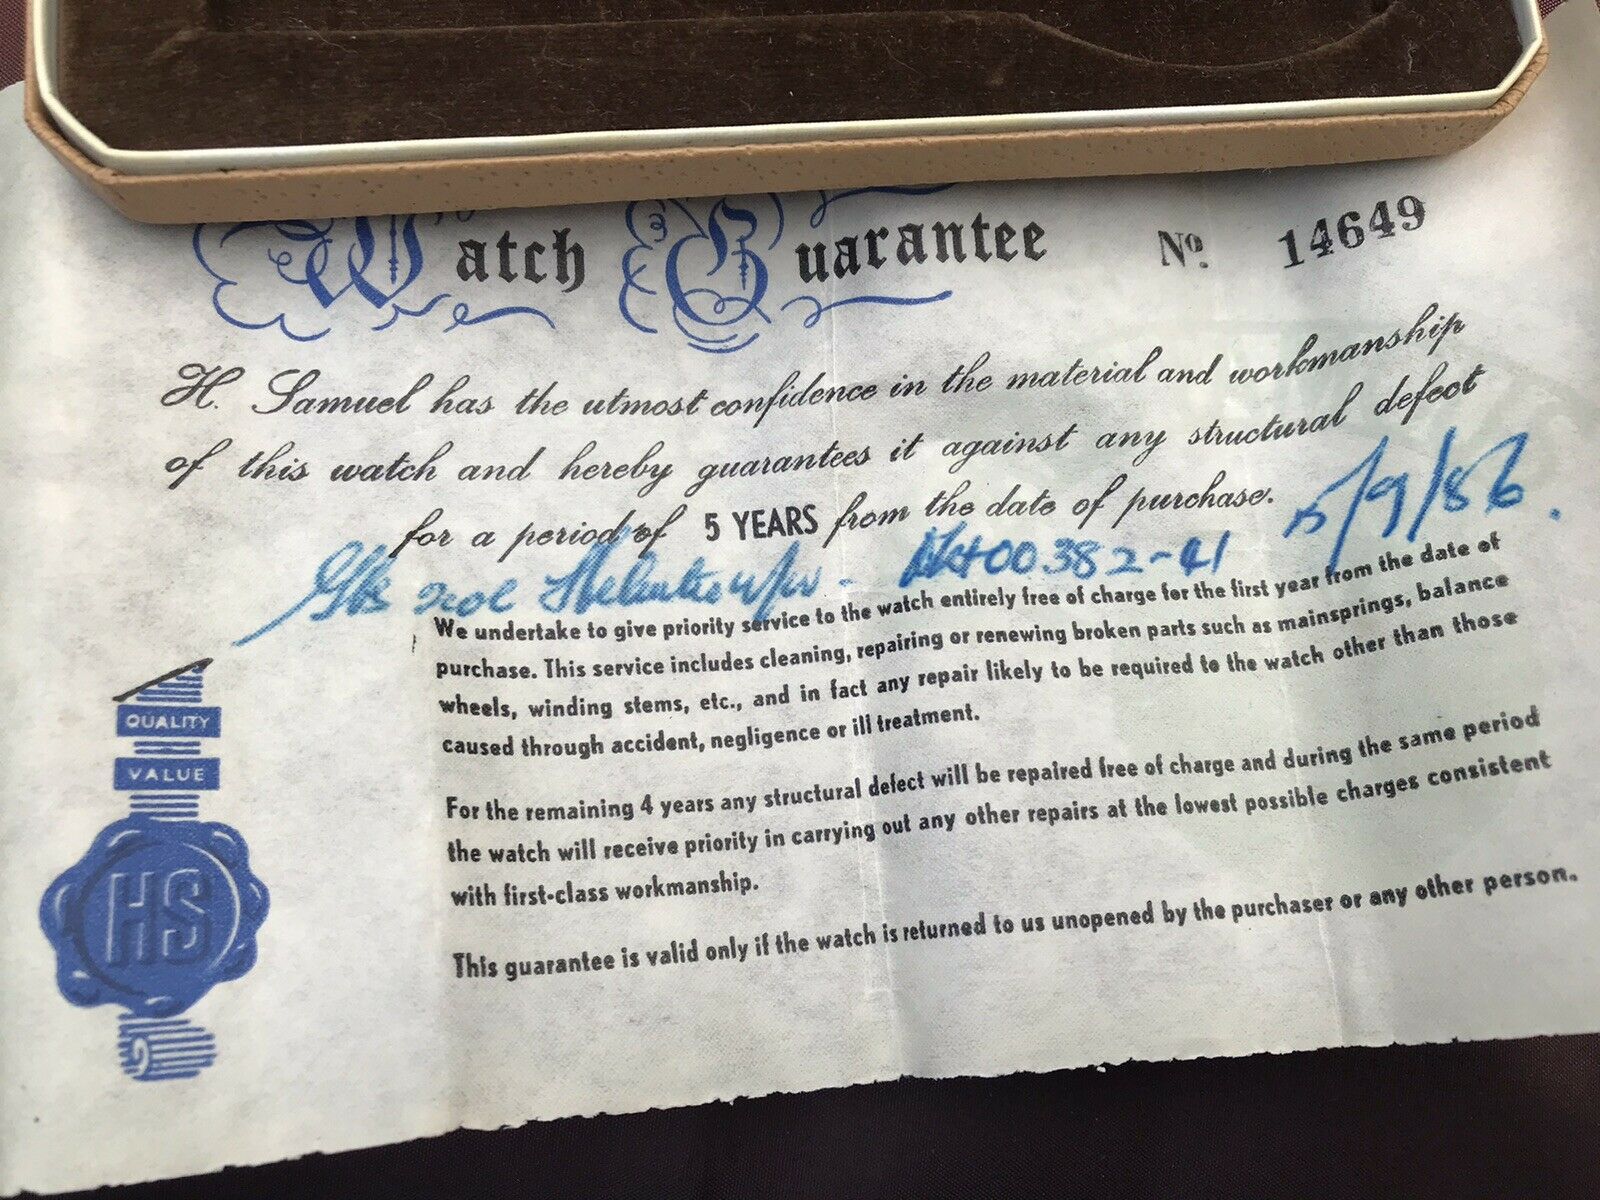 Watch Guarantee No. 14649
H. Samuel has the utmost confidence in the material and workmanship
of this watch and hereby guarantees it against any structural defect
for a period of 5 YEARS from the date of purchase.
5/9/86.
00382-41
We undertake to give priority service to the watch entirely free of charge for the first year from the date of
purchase. This service includes cleaning, repairing or renewing broken parts such as mainsprings, balance
wheels, winding stems, etc., and in fact any repair likely to be required to the watch other than those
caused through accident, negligence or ill treatment.
For the remaining 4 years any structural defect will be repaired free of charge and during the same period
the watch will receive priority in carrying out any other repairs at the lowest possible charges consistent
with first-class workmanship.
This guarantee is valid only if the watch is returned to us unopened by the purchaser or any other person.
QUALITY
VALUE
HS